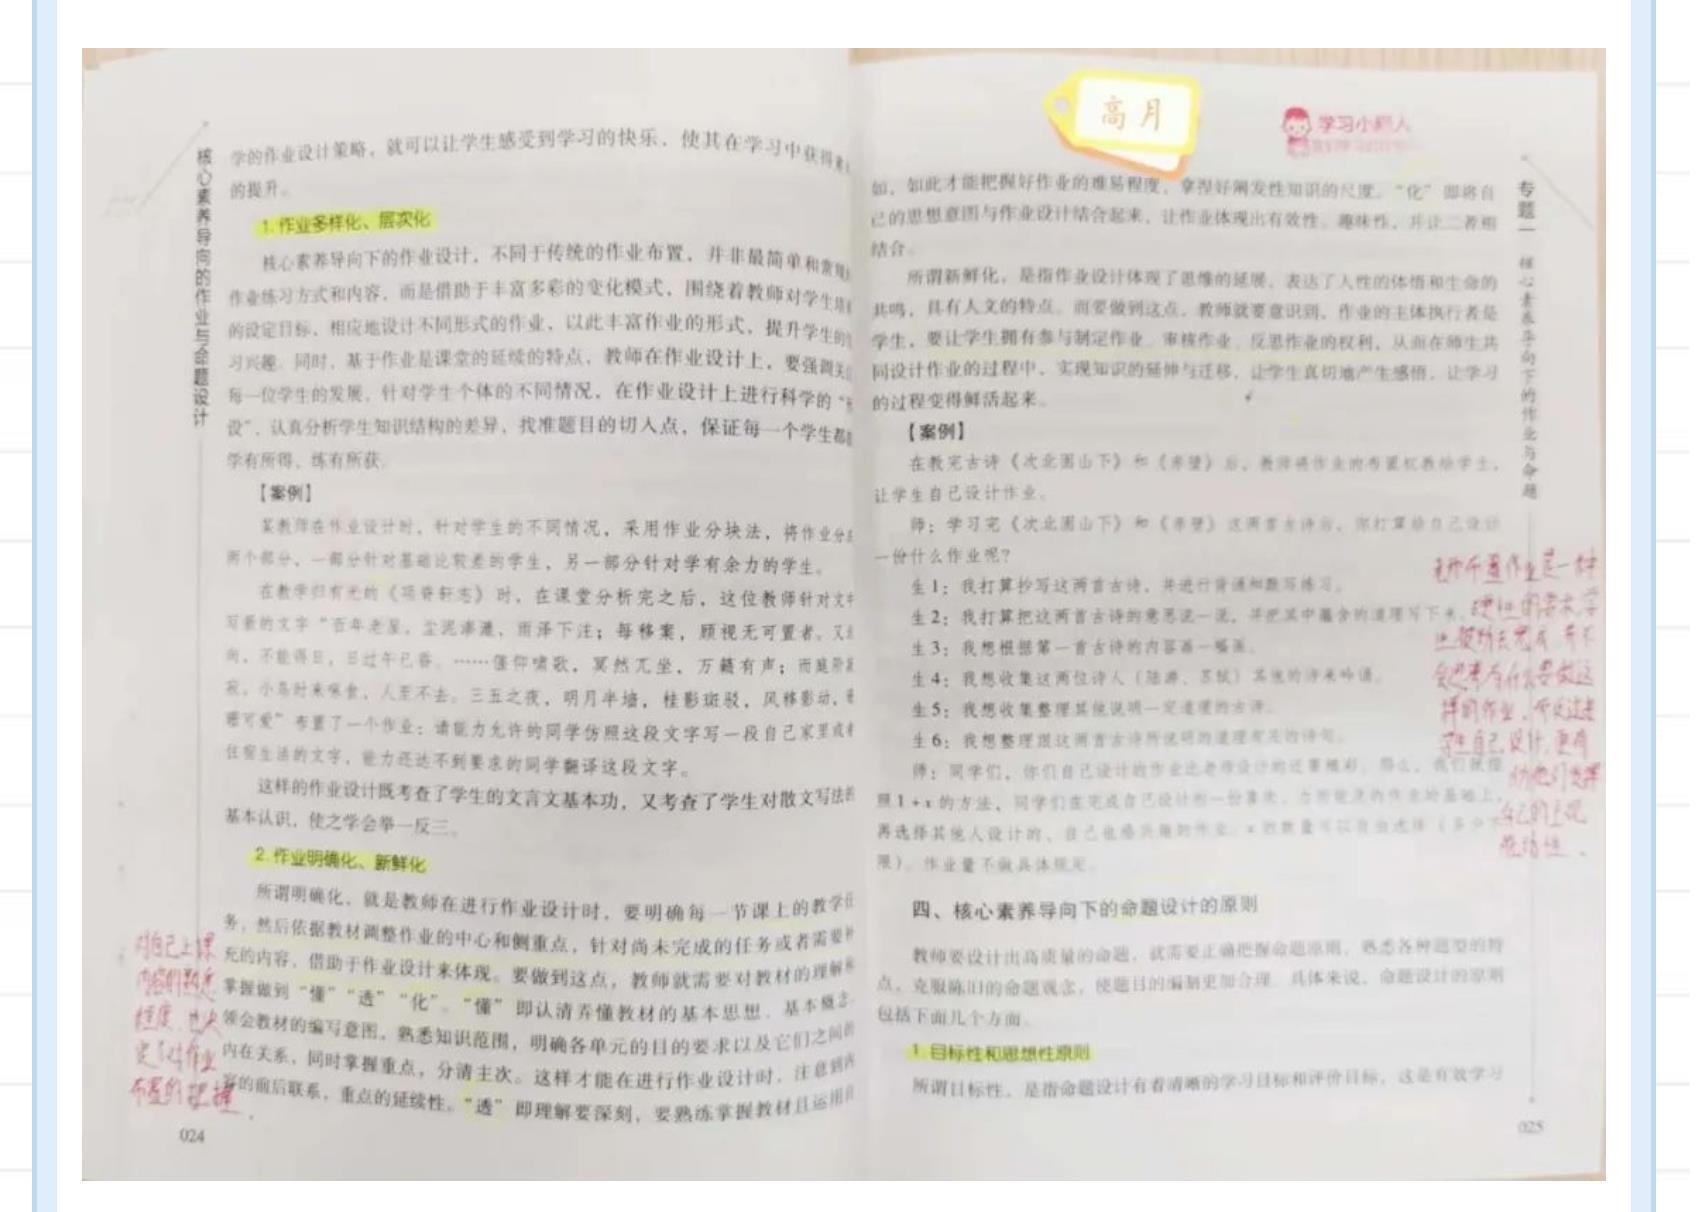 核心素养导向的作业与命题设计
学的作业设计策略，就可以让学生感受到学习的快乐，使其在学习中获得
的提升。
1.作业多样化、层次化
核心素养导向下的作业设计，不同于传统的作业布置，并非最简单和常规
作业练习方式和内容，而是借助于丰富多彩的变化模式，围绕着教师对学生
的设定目标，相应地设计不同形式的作业，以此丰富作业的形式，提升学生的
习兴趣。同时，基于作业是课堂的延续的特点，教师在作业设计上，要强调
每一位学生的发展，针对学生个体的不同情况，在作业设计上进行科学的“
设”，认真分析学生知识结构的差异，找准题目的切入点，保证每一个学生都
学有所得，练有所获。
【案例】
某教师在作业设计时，针对学生的不同情况，采用作业分块法，将作业分
两个部分，一部分针对基础比较差的学生，另一部分针对学有余力的学生。
在教学归有光的《项脊轩志》时，在课堂分析完之后，这位教师针对文中
写景的文字“百年老屋，尘泥渗漉，雨泽下注；每移案，顾视无可置者。又
向，不能得日，日过午已昏。……偃仰啸歌，冥然兀坐，万籁有声；而庭阶
寂，小鸟时来啄食，人至不去。三五之夜，明月半墙，桂影斑驳，风移影动，
珊可爱”布置了一个作业：请能力允许的同学仿照这段文字写一段自己家里或
住宿生活的文字，能力还达不到要求的同学翻译这段文字。
这样的作业设计既考查了学生的文言文基本功，又考查了学生对散文写法的
基本认识，使之学会举一反三。
2.作业明确化、新鲜化
所谓明确化，就是教师在进行作业设计时，要明确每一节课上的教学任
务，然后依据教材调整作业的中心和侧重点，针对尚未完成的任务或者需要补
充的内容，借助于作业设计来体现。要做到这点，教师就需要对教材的理解
掌握做到“懂”“透”“化”。“懂”即认清弄懂教材的基本思想、基本概念，
领会教材的编写意图，熟悉知识范围，明确各单元的目的要求以及它们之间的
内在关系，同时掌握重点，分清主次。这样才能在进行作业设计时，注意到内
容的前后联系，重点的延续性。“透”即理解要深刻，要熟练掌握教材且运用自
对自己上课
内容的熟悉
程度，也决
定了对作业
布置的把握。
024
高月
学习小新人
如，如此才能把握好作业的难易程度，拿捏好阐发性知识的尺度。“化”即将自
己的思想意图与作业设计结合起来，让作业体现出有效性、趣味性，并让二者相
结合。
所谓新鲜化，是指作业设计体现了思维的延展，表达了人性的体悟和生命的
共鸣，具有人文的特点。而要做到这点，教师就要意识到，作业的主体执行者是
学生，要让学生拥有参与制定作业、审核作业、反思作业的权利，从而在师生共
同设计作业的过程中，实现知识的延伸与迁移，让学生真切地产生感悟，让学习
的过程变得鲜活起来。
【案例】
在教完古诗《次北固山下》和《赤壁》后，教师将作业的布置权教给学生，
让学生自己设计作业。
师：学习完《次北固山下》和《赤壁》这两首古诗后，你打算给自己设计
一份什么作业呢？
生1：我打算抄写这两首古诗，并进行背诵和默写练习。
生2：我打算把这两首古诗的意思说一说，并把其中蕴含的道理写下来。
生3：我想根据第一首古诗的内容画一幅画。
生4：我想收集这两位诗人（陆游、苏轼）其他的诗来吟诵。
生5：我想收集整理其他说明一定道理的古诗。
生6：我想整理跟这两首古诗所说明的道理有关的诗句。
师：同学们，你们自己设计的作业比老师设计的还要精彩。那么，我们就按
照1+x的方法，同学们在完成自己设计的一份喜欢、力所能及的作业的基础上，
再选择其他人设计的、自己也感兴趣的作业，x的数量可以自由选择（多少不
限），作业量不做具体规定。
四、核心素养导向下的命题设计的原则
教师要设计出高质量的命题，就需要正确把握命题原则，熟悉各种题型的特
点，克服陈旧的命题观念，使题目的编制更加合理。具体来说，命题设计的原则
包括下面几个方面。
1.目标性和思想性原则
所谓目标性，是指命题设计有着清晰的学习目标和评价目标，这是有效学习
专题一 核心素养导向下的作业与命题
老师布置作业是一种
硬性的要求，学
生被动去完成，并不
会思考为什么要做这
样的作业，所以让
学生自己设计，更有
助他们发挥
自己的主观
能动性。
025